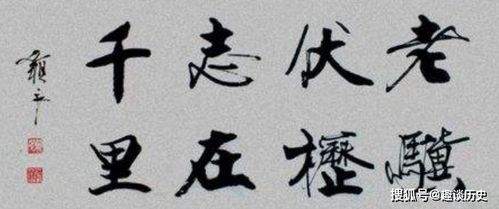 老驥
伏櫪
志在
千里
搜狐号@趣谈历史